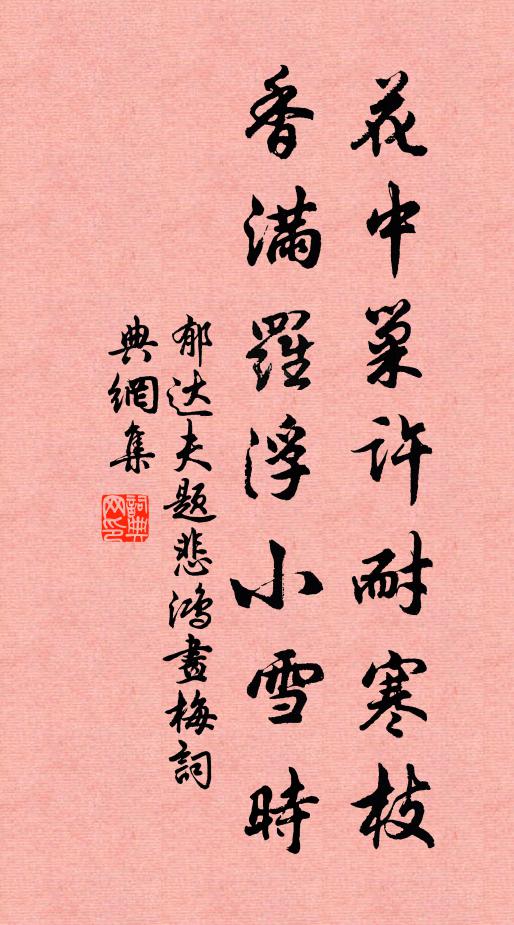 花中巢許耐寒枝
香滿羅浮小雪時
郁达夫題悲鴻畫梅詞
典網集
詞典网印